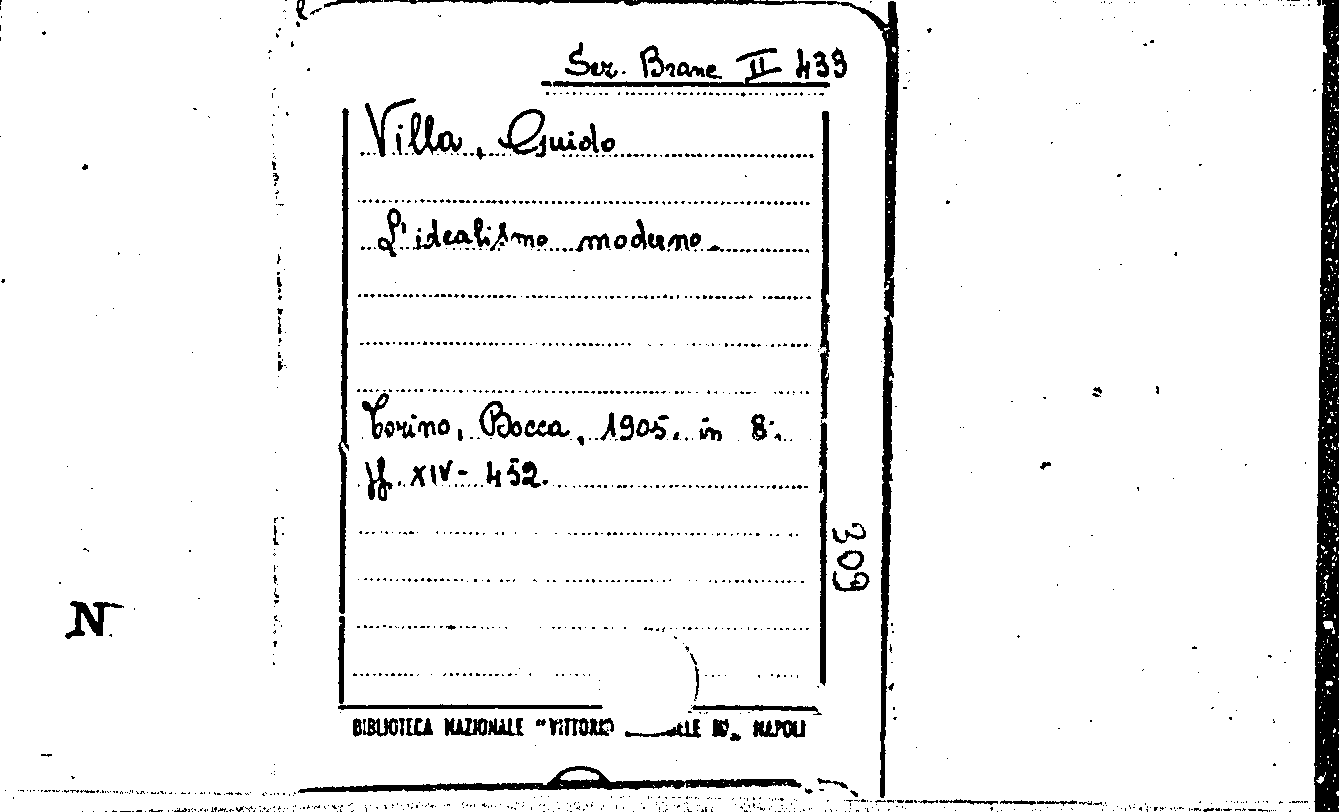 Ser. Branc II 433
Villa, Guido
L'idealismo moderno.
Torino, Bocca, 1905. in 8°.
pp. XIV - 452.
309
N
BIBLIOTECA NAZIONALE "VITTORIO ELE III" NAPOLI